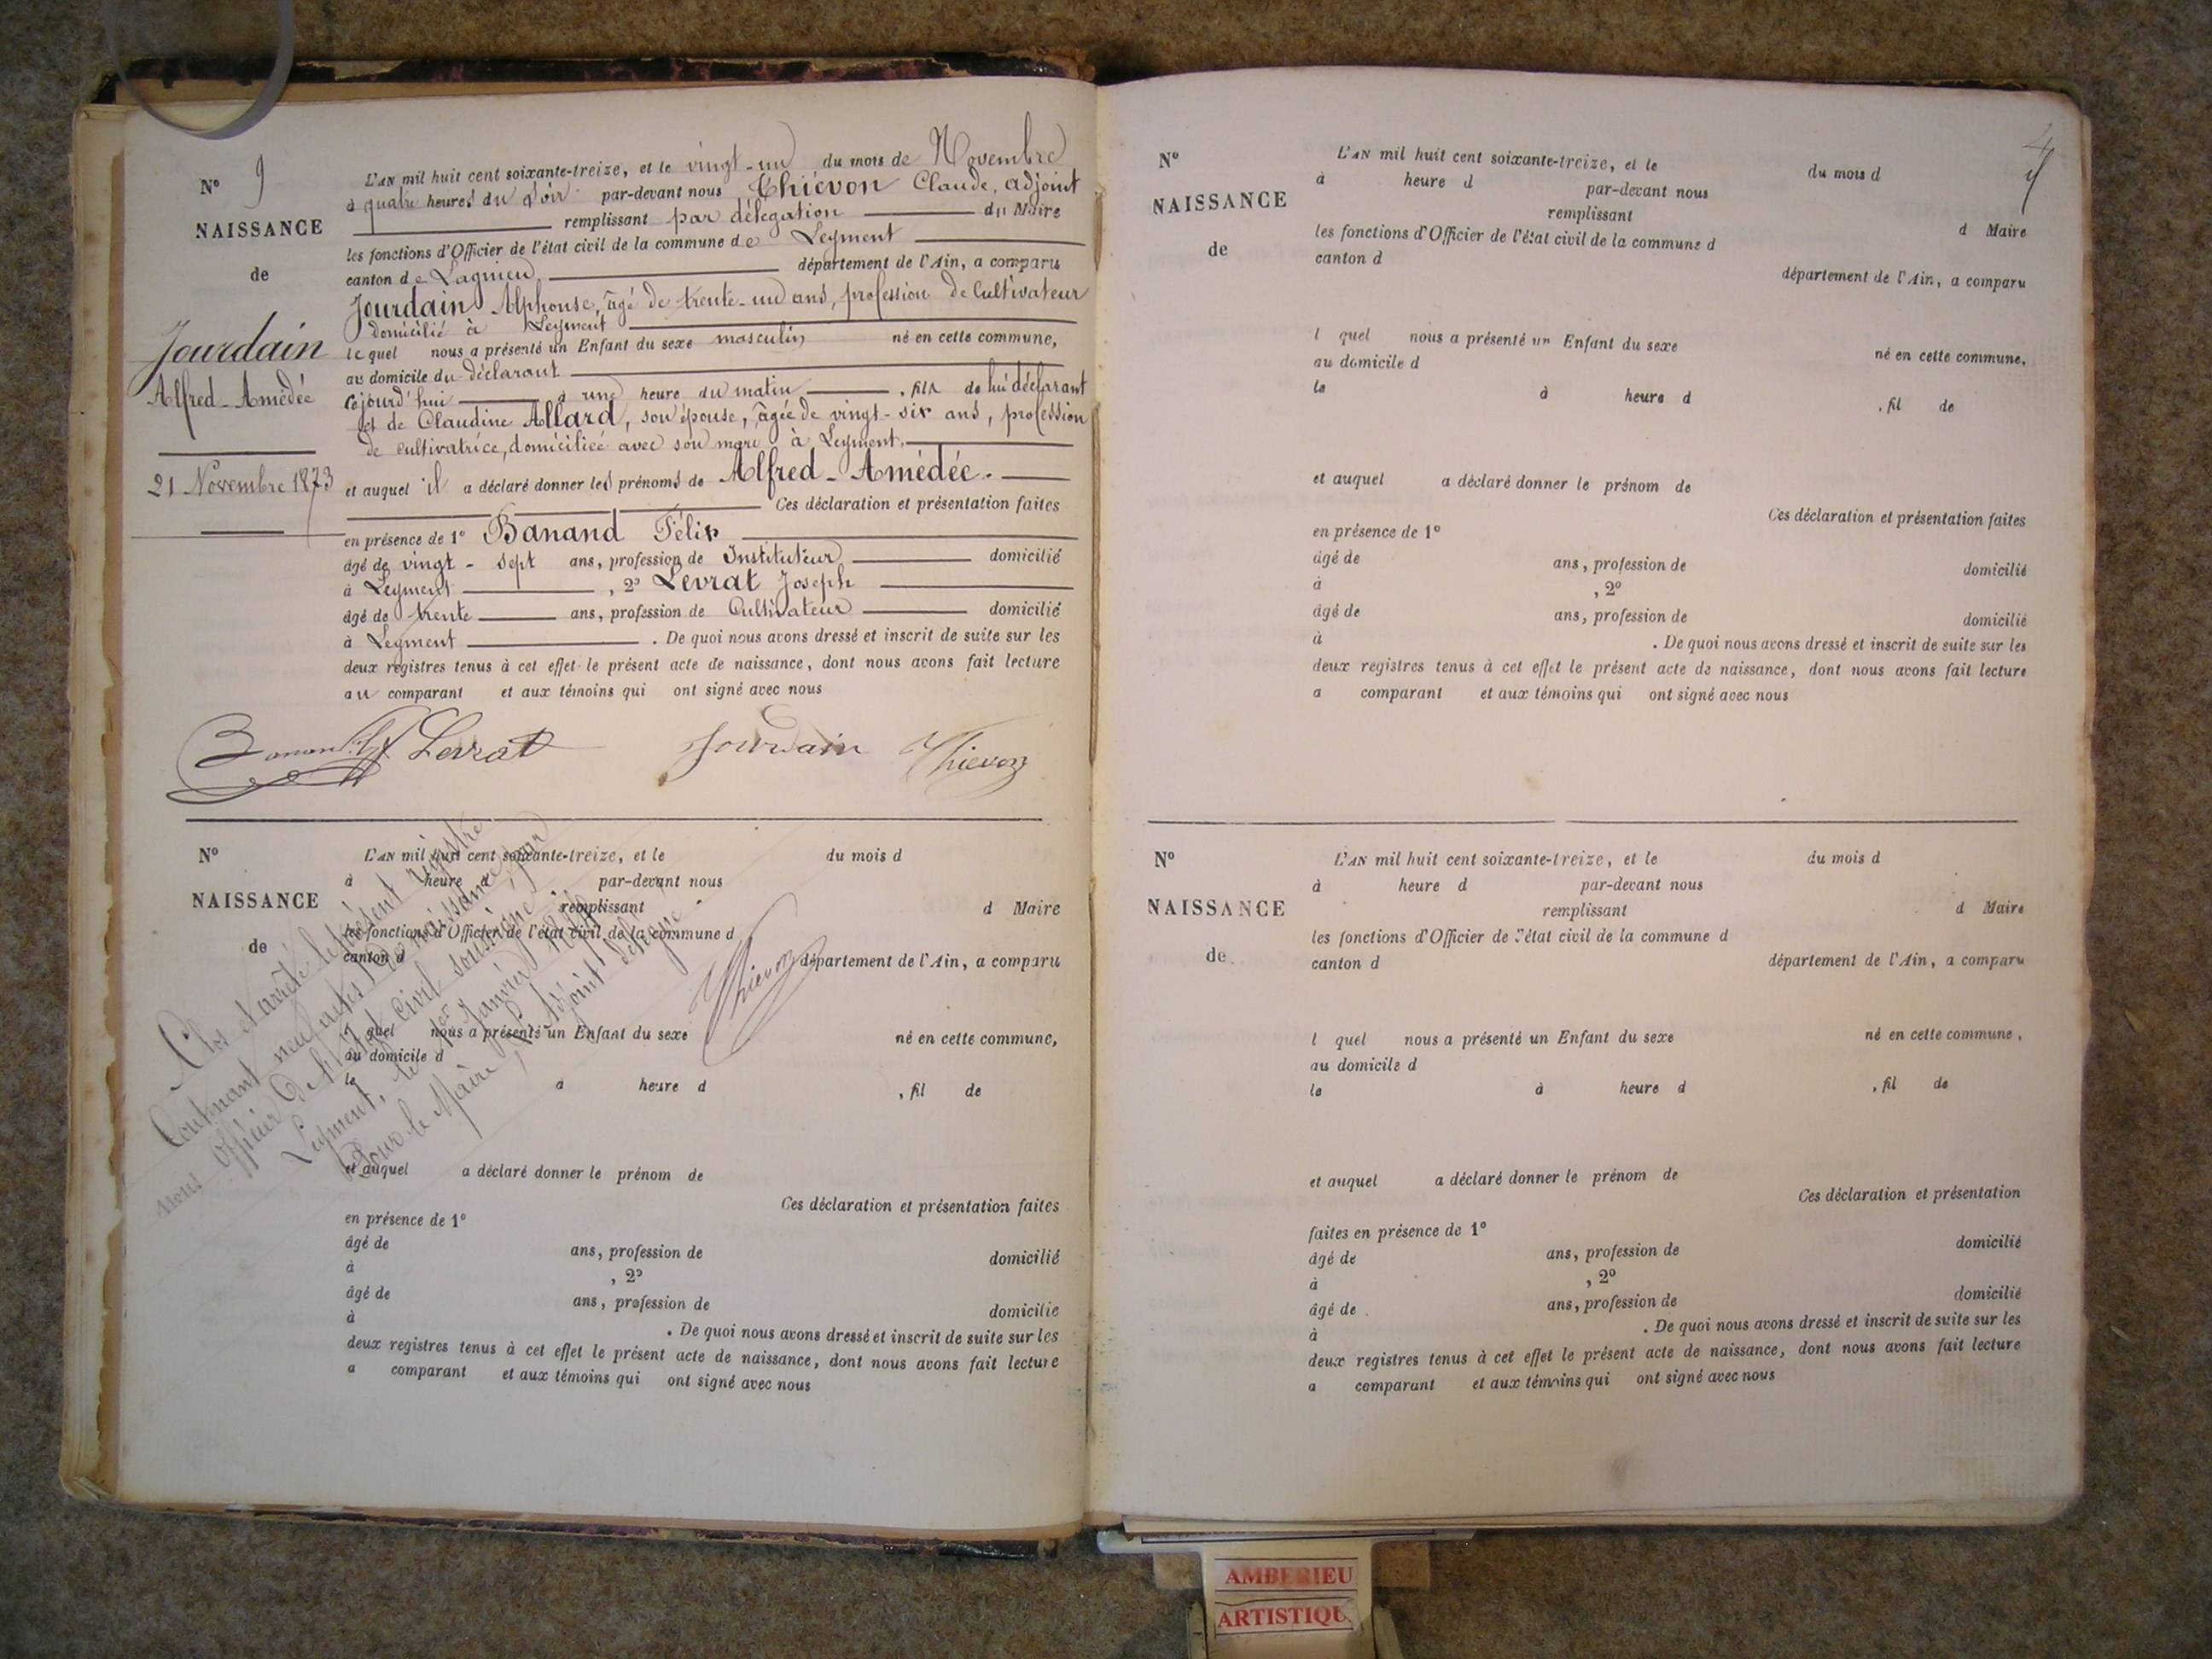 N° 9
NAISSANCE
de
Jourdain
Alfred-Amédée
21 Novembre 1873
L'AN mil huit cent soixante-treize, et le vingt-un du mois de Novembre
à quatre heures du soir par-devant nous Thiévon Claude, adjoint
remplissant par délégation du Maire
les fonctions d'Officier de l'état civil de la commune de Leyment
canton de Lagnieu département de l'Ain, a comparu
Jourdain Alphonse, âgé de trente-un ans, profession de Cultivateur
domicilié à Leyment
lequel nous a présenté un Enfant du sexe masculin né en cette commune,
au domicile du déclarant
cejourd'hui à une heure du matin, fils de lui déclarant
et de Claudine Allard, son épouse, âgée de vingt-six ans, profession
de cultivatrice, domiciliée avec son mari à Leyment,
et auquel il a déclaré donner les prénoms de Alfred-Amédée.
Ces déclaration et présentation faites
en présence de 1° Banand Félix
âgé de vingt-sept ans, profession de Instituteur domicilié
à Leyment, 2° Levrat Joseph
âgé de trente ans, profession de Cultivateur domicilié
à Leyment. De quoi nous avons dressé et inscrit de suite sur les
deux registres tenus à cet effet le présent acte de naissance, dont nous avons fait lecture
au comparant et aux témoins qui ont signé avec nous
Levrat Jourdain Thievon
N°
NAISSANCE
de
L'AN mil huit cent soixante-treize, et le du mois d
à heure d par-devant nous
remplissant d Maire
les fonctions d'Officier de l'état civil de la commune d
canton d département de l'Ain, a comparu
l quel nous a présenté un Enfant du sexe né en cette commune,
au domicile d
le à heure d , fil de
et auquel a déclaré donner le prénom de
Ces déclaration et présentation faites
en présence de 1°
âgé de ans, profession de domicilié
à , 2°
âgé de ans, profession de domicilié
à . De quoi nous avons dressé et inscrit de suite sur les
deux registres tenus à cet effet le présent acte de naissance, dont nous avons fait lecture
a comparant et aux témoins qui ont signé avec nous
Clos et arrêté le présent registre
Contenant neuf actes de naissance, par
nous Officier de l'état civil soussigné,
Leyment, le 1er Janvier
Pour le Maire, l'adjoint délégué
Thievon
4
N°
NAISSANCE
de
L'AN mil huit cent soixante-treize, et le du mois d
à heure d par-devant nous
remplissant d Maire
les fonctions d'Officier de l'état civil de la commune d
canton d département de l'Ain, a comparu
l quel nous a présenté un Enfant du sexe né en cette commune,
au domicile d
le à heure d , fil de
et auquel a déclaré donner le prénom de
Ces déclaration et présentation faites
en présence de 1°
âgé de ans, profession de domicilié
à , 2°
âgé de ans, profession de domicilié
à . De quoi nous avons dressé et inscrit de suite sur les
deux registres tenus à cet effet le présent acte de naissance, dont nous avons fait lecture
a comparant et aux témoins qui ont signé avec nous
N°
NAISSANCE
de
L'AN mil huit cent soixante-treize, et le du mois d
à heure d par-devant nous
remplissant d Maire
les fonctions d'Officier de l'état civil de la commune d
canton d département de l'Ain, a comparu
l quel nous a présenté un Enfant du sexe né en cette commune,
au domicile d
le à heure d , fil de
et auquel a déclaré donner le prénom de
Ces déclaration et présentation
faites en présence de 1°
âgé de ans, profession de domicilié
à , 2°
âgé de ans, profession de domicilié
à . De quoi nous avons dressé et inscrit de suite sur les
deux registres tenus à cet effet le présent acte de naissance, dont nous avons fait lecture
a comparant et aux témoins qui ont signé avec nous
AMBERIEU
ARTISTIQU